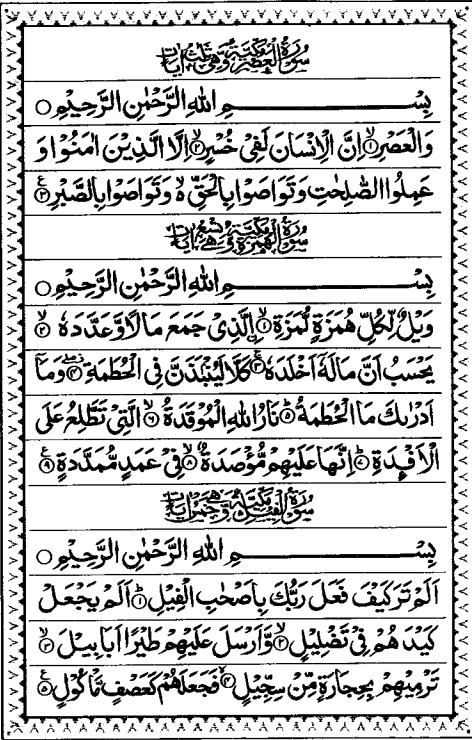 سُوْرَةُ الْعَصْرِ مَكِّيَّةٌ وَّهِيَ ثَلٰثُ اٰيَاتٍ
بِسْمِ اللهِ الرَّحْمٰنِ الرَّحِيْمِ ○
وَالْعَصْرِ ۙ﴿۱﴾ اِنَّ الْاِنْسَانَ لَفِيْ خُسْرٍ ۙ﴿۲﴾ اِلَّا الَّذِيْنَ اٰمَنُوْا وَ
عَمِلُوا الصّٰلِحٰتِ وَتَوَاصَوْا بِالْحَقِّ ۙ۬ وَتَوَاصَوْا بِالصَّبْرِ ﴿۳﴾ ع
سُوْرَةُ الْهُمَزَةِ مَكِّيَّةٌ وَّهِيَ تِسْعُ اٰيَاتٍ
بِسْمِ اللهِ الرَّحْمٰنِ الرَّحِيْمِ ○
وَيْلٌ لِّكُلِّ هُمَزَةٍ لُّمَزَةِ ۙ﴿۱﴾ اِلَّذِيْ جَمَعَ مَالًا وَّعَدَّدَهٗ ۙ﴿۲﴾
يَحْسَبُ اَنَّ مَالَهٗۤ اَخْلَدَهٗ ۚ﴿۳﴾ كَلَّا لَيُنْۢبَذَنَّ فِي الْحُطَمَةِ ﴿۴﴾ وَمَاۤ
اَدْرٰىكَ مَا الْحُطَمَةُ ؕ﴿۵﴾ نَارُ اللهِ الْمُوْقَدَةُ ۙ﴿۶﴾ الَّتِيْ تَطَّلِعُ عَلَى
الْاَفْـِٕدَةِ ؕ﴿۷﴾ اِنَّهَا عَلَيْهِمْ مُّؤْصَدَةٌ ۙ﴿۸﴾ فِيْ عَمَدٍ مُّمَدَّدَةٍ ﴿۹﴾ ع
سُوْرَةُ الْفِيْلِ مَكِّيَّةٌ وَّهِيَ خَمْسُ اٰيَاتٍ
بِسْمِ اللهِ الرَّحْمٰنِ الرَّحِيْمِ ○
اَلَمْ تَرَ كَيْفَ فَعَلَ رَبُّكَ بِاَصْحٰبِ الْفِيْلِ ؕ﴿۱﴾ اَلَمْ يَجْعَلْ
كَيْدَهُمْ فِيْ تَضْلِيْلٍ ۙ﴿۲﴾ وَّاَرْسَلَ عَلَيْهِمْ طَيْرًا اَبَابِيْلَ ۙ﴿۳﴾
تَرْمِيْهِمْ بِحِجَارَةٍ مِّنْ سِجِّيْلٍ ۙ﴿۴﴾ فَجَعَلَهُمْ كَعَصْفٍ مَّاْكُوْلٍ ﴿۵﴾ ع